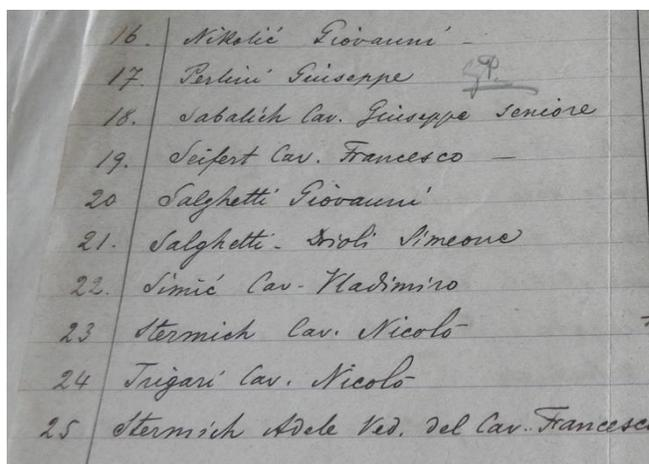 16. Nikolić Giovanni -
17. Perlini Giuseppe GP.
18. Sabalich Cav. Giuseppe seniore
19. Seifert Cav. Francesco -
20 Salghetti Giovanni
21. Salghetti - Drioli Simeone
22. Simić Cav. Vladimiro
23 Stermich Cav. Nicolò
24 Trigari Cav. Nicolò
25 Stermich Adele Ved. del Cav. Francesco